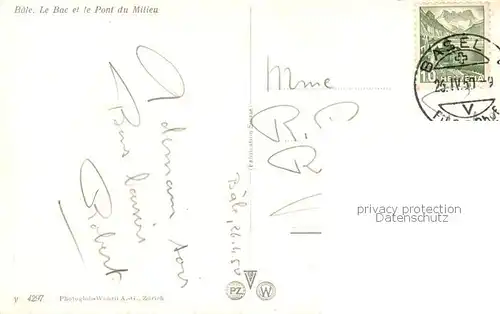 Bâle. Le Bac et le Pont du Milieu
BASEL
10
25.IV.50-9
V
Mme
R. P
R
A demain soir
Bons baisers
Robert
Bâle, 24.4.50
privacy protection
Datenschutz
V 4297 Photoglob-Wehrli A.-G., Zürich
PZ
W